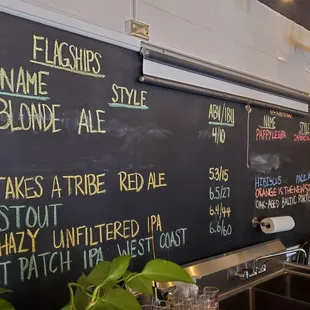 FLAGSHIPS
NAME STYLE ABV/IBU
BLONDE ALE 4/10
TAKES A TRIBE RED ALE 53/15
STOUT 6.5/27
HAZY UNFILTERED IPA 6.4/44
PATCH IPA WEST COAST 6.6/60
NAME
HIBISCUS PALE
ORANGE IS THE NEW
OAK-AGED BALTIC